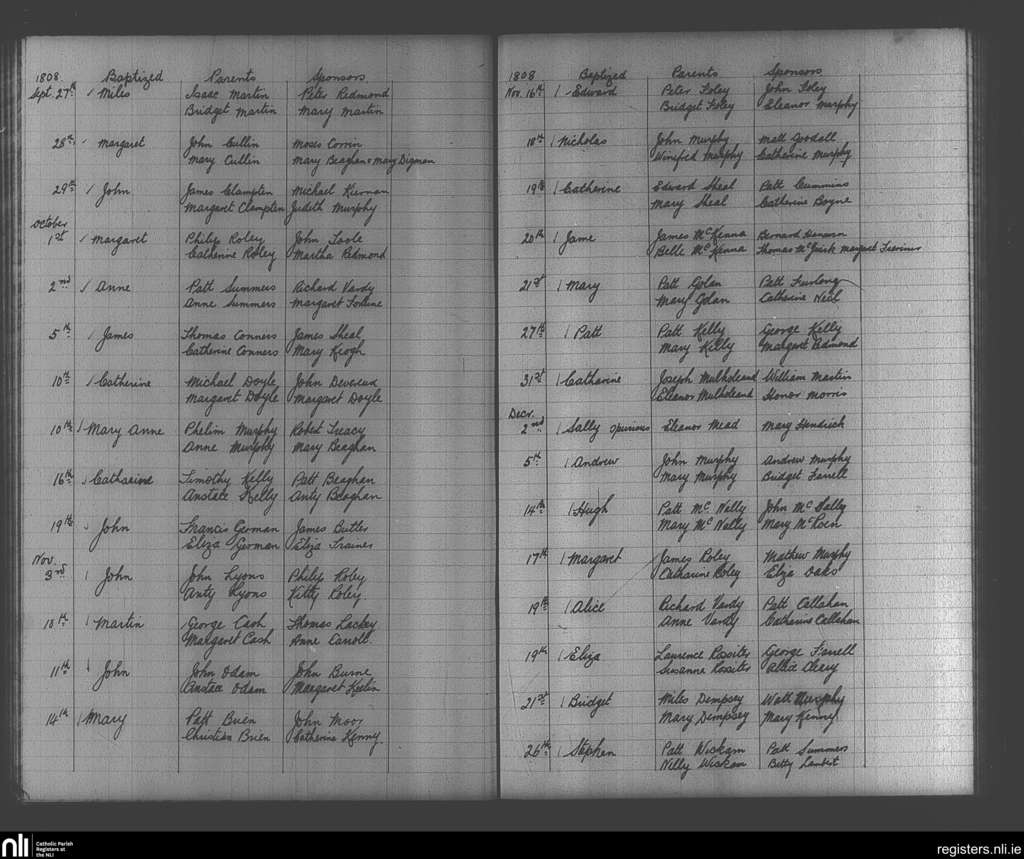 1808. Baptized Parents Sponsors
Sept. 27th Miles Isaac Martin Peter Redmond
Bridget Martin Mary Martin
28th Margaret John Cullin Moses Corrin
Mary Cullin Mary Beaghan & Mary Digman
29th John James Clampten Michael Kiernan
Margaret Clampten Judith Murphy
October
1st Margaret Philip Roley John Toole
Catherine Roley Martha Redmond
2nd Anne Patt Summers Richard Vardy
Anne Summers Margaret Fortune
5th James Thomas Conners James Sheal
Catherine Conners Mary Keogh
10th Catherine Michael Doyle John Devereux
Margaret Doyle Margaret Doyle
10th Mary Anne Phelim Murphy Robert Treacy
Anne Murphy Mary Beaghan
16th Catharine Timothy Kelly Patt Beaghan
Anstace Kelly Anty Beaghan
19th John Francis Gorman James Butler
Eliza Gorman Eliza Trainer
Nov.
3rd John John Lyons Philip Roley
Anty Lyons Kitty Roley
10th Martin George Cash Thomas Lackey
Margaret Cash Anne Carroll
11th John John Odam John Burne
Anstace Odam Margaret
14th Mary Patt Brien John Moor
Christian Brien Catherine Kenny
1808 Baptized Parents Sponsors
Nov. 16th Edward Peter Foley John Foley
Bridget Foley Eleanor Murphy
18th Nicholas John Murphy Matt Goodall
Winifred Murphy Catherine Murphy
19th Catherine Edward Sheal Patt Cummins
Mary Sheal Catherine Boyne
20th Jame James McKenna Bernard
Belle McKenna Thomas McGuirk Margaret
21st Mary Patt Golan Patt Furlong
Mary Golan Catherine Neil
27th Patt Patt Kelly George Kelly
Mary Kelly Margaret Redmond
31st Catharine Joseph Mulholeand William Martin
Eleanor Mulholeand Honor Morris
Decr.
2nd Sally spurious Eleanor Mead Mary Hendrick
5th Andrew John Murphy Andrew Murphy
Mary Murphy Bridget Farrell
14th Hugh Patt McNally John McSally
Mary McNally Mary McKoen
17th Margaret James Roley Mathew Murphy
Catharine Roley Eliza Oaks
19th Alice Richard Vardy Patt Callahan
Anne Vardy Catharine Callahan
19th Eliza Laurence Rossiter George Farrell
Susanna Rossiter Allice Cleary
21st Bridget Miles Dempsey Watt Murphy
Mary Dempsey Mary Kenny
26th Stephen Patt Wickam Patt Summers
Nelly Wickam Betty Lambert
nli Catholic Parish
Registers at
the NLI
registers.nli.ie